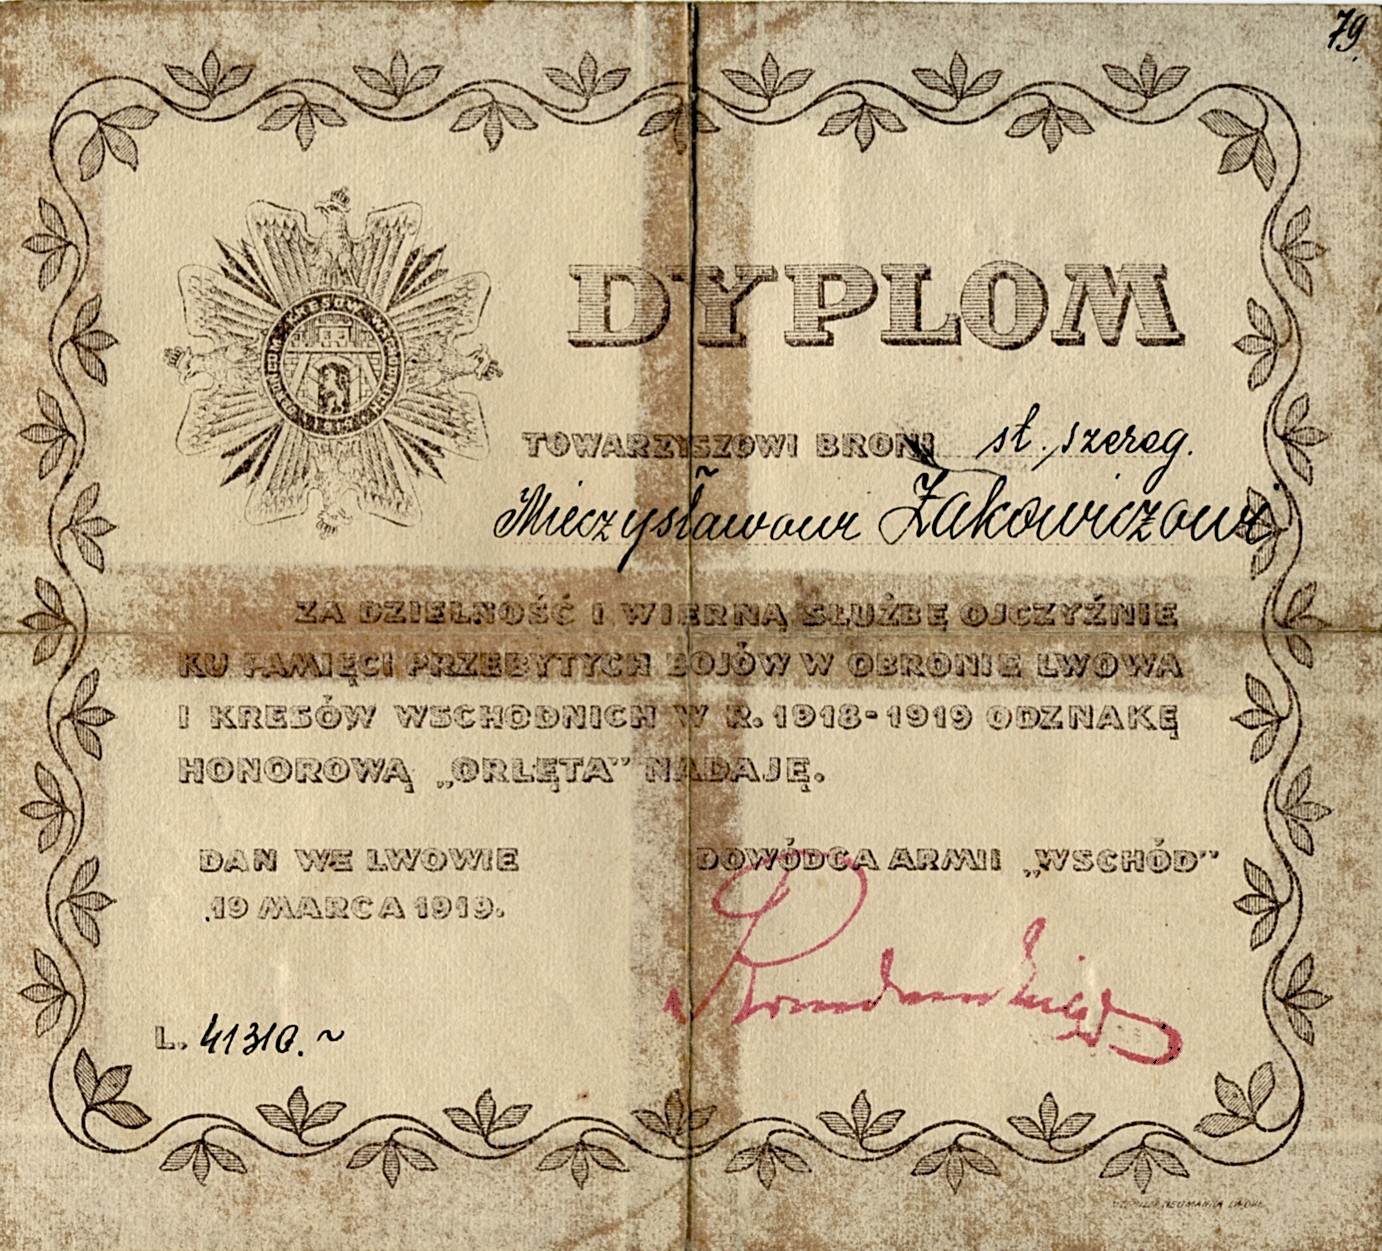 79.
DYPLOM
TOWARZYSZOWI BRONI st. szereg.
Mieczysławowi Żakowiczowi
ZA DZIELNOŚĆ I WIERNĄ SŁUŻBĘ OJCZYŹNIE
KU PAMIĘCI PRZEBYTYCH BOJÓW W OBRONIE LWOWA
I KRESÓW WSCHODNICH W R. 1918-1919 ODZNAKĘ
HONOROWĄ „ORLĘTA” NADAJĘ.
DAN WE LWOWIE
19 MARCA 1919.
DOWÓDCA ARMII „WSCHÓD”
L. 41310.~